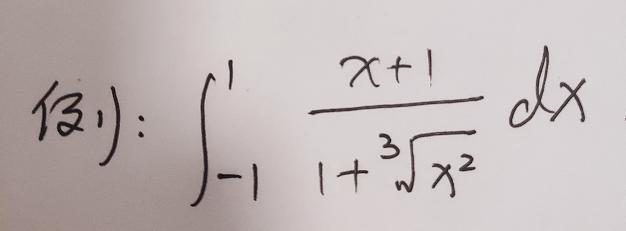 例: ∫_{-1}^{1} \frac{x+1}{1+\sqrt[3]{x^2}} dx